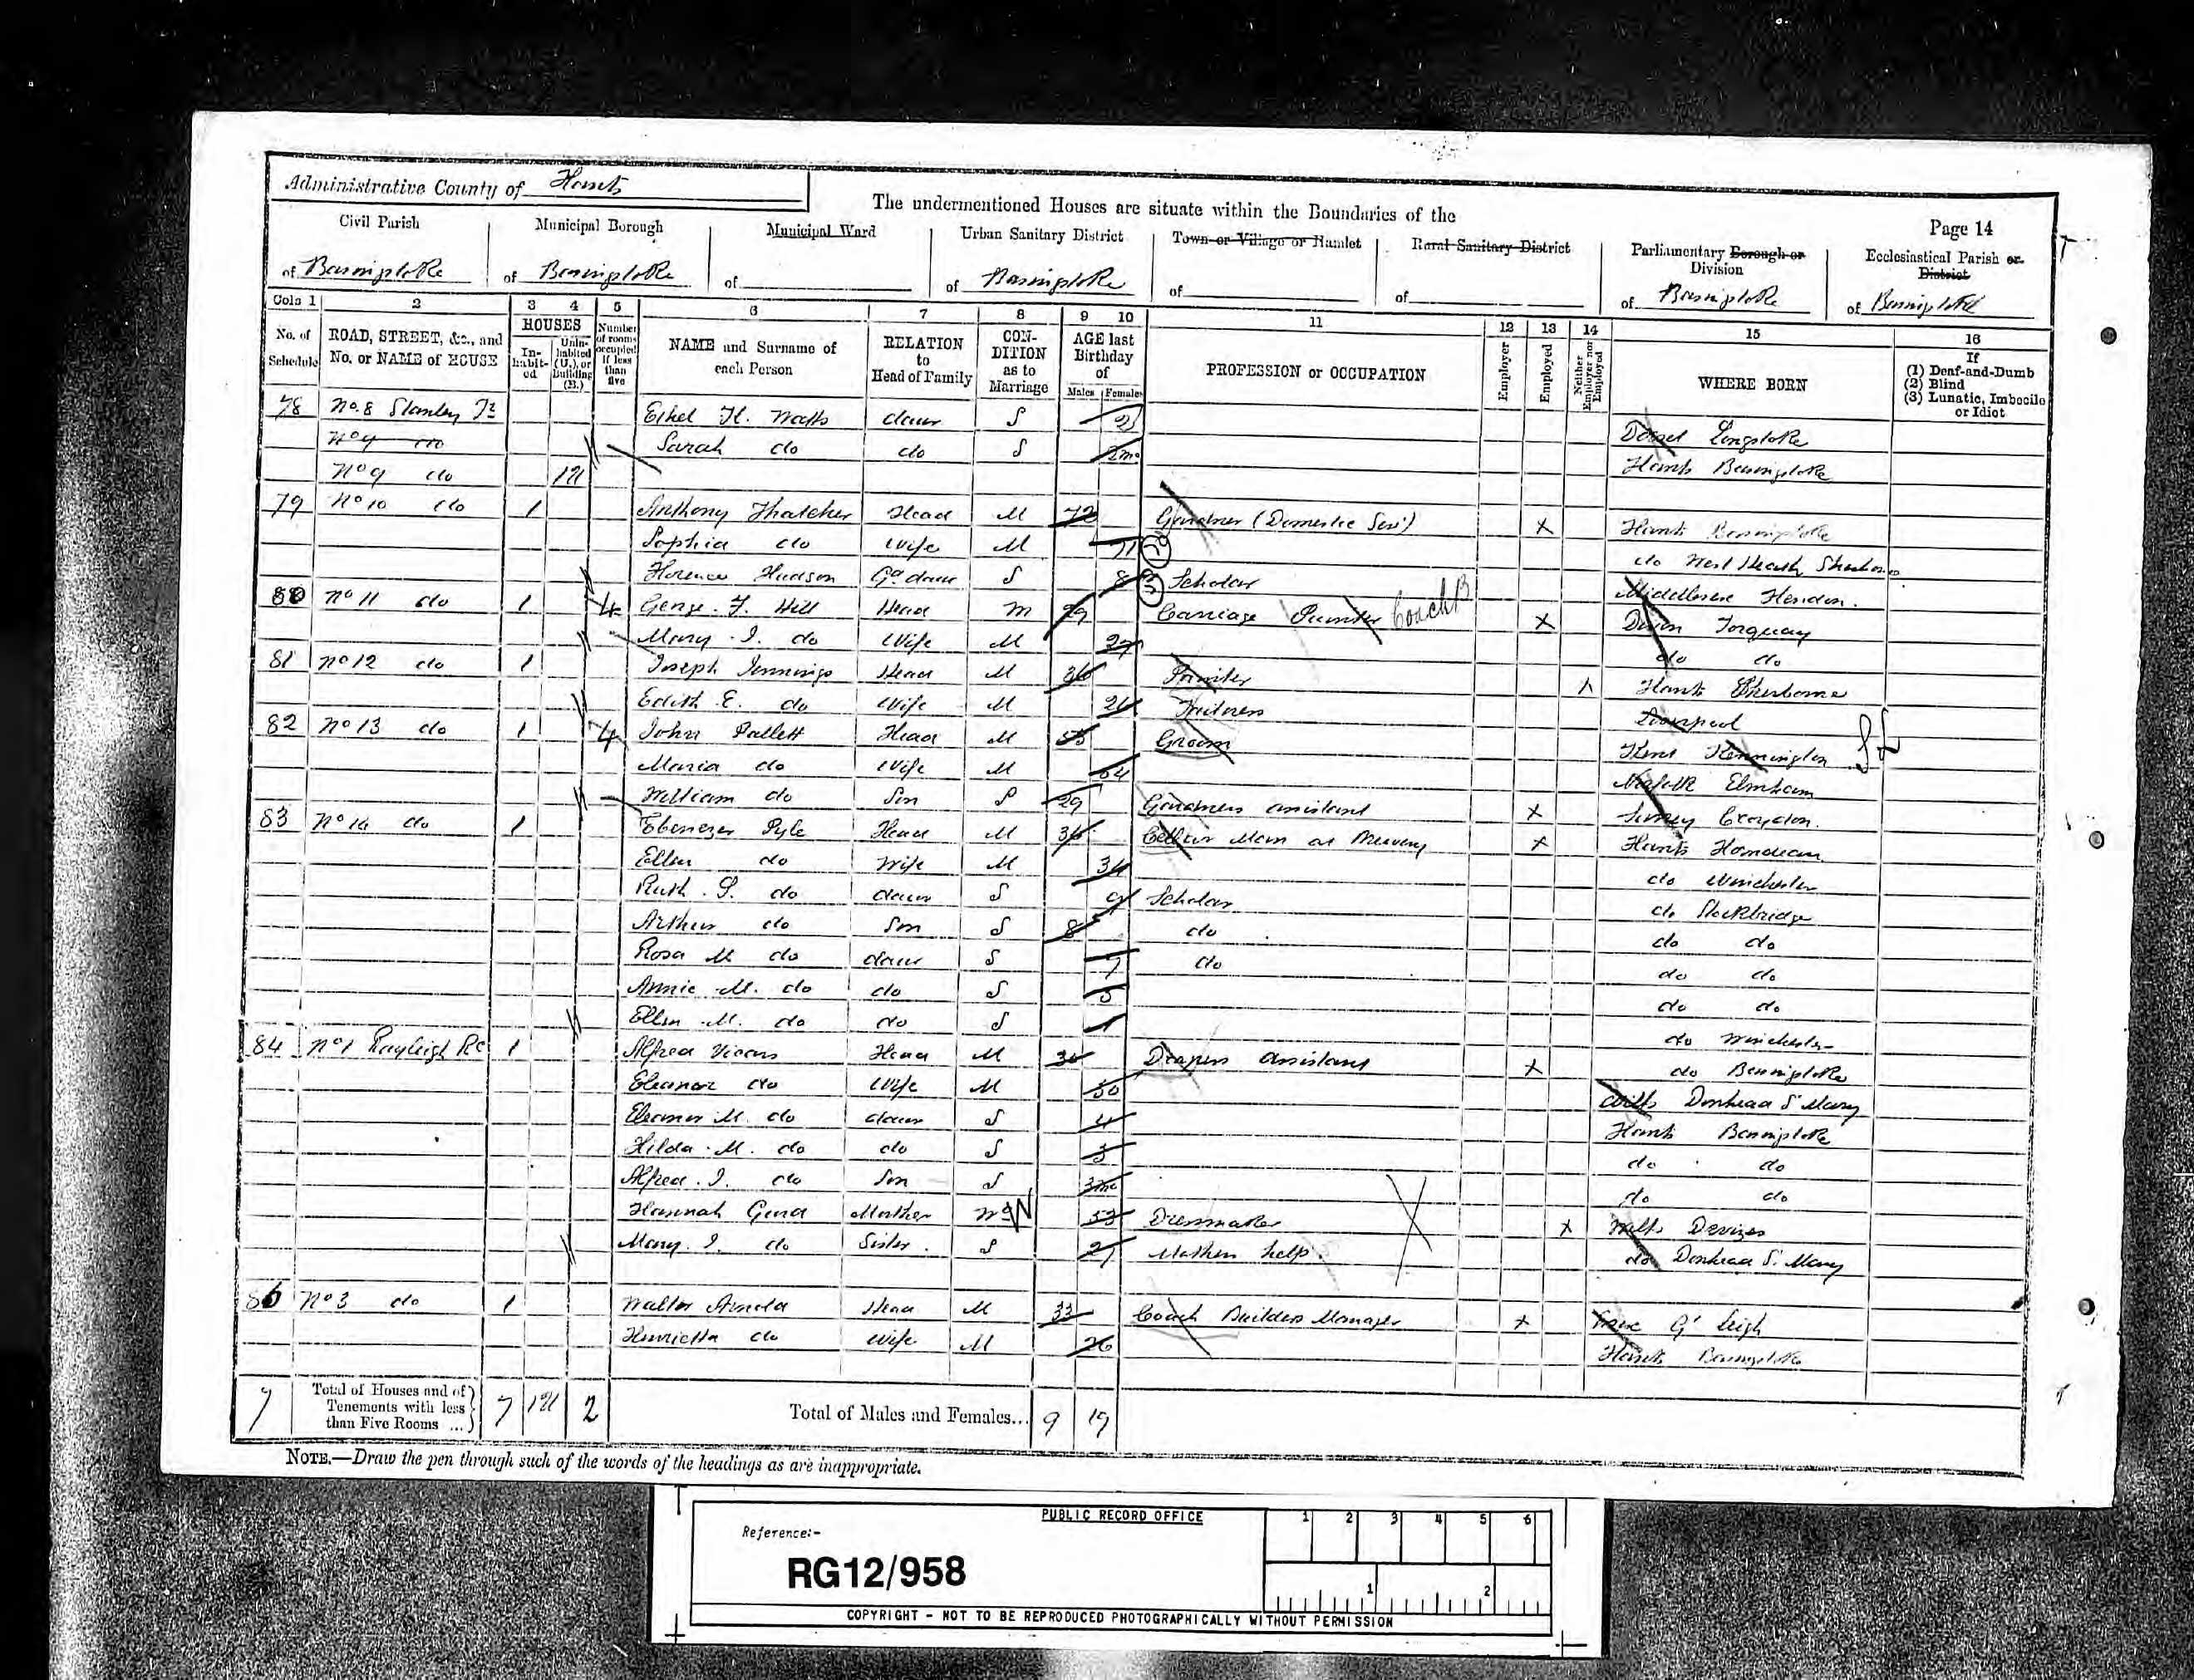 Administrative County of Hants
The undermentioned Houses are situate within the Boundaries of the
Page 14
Civil Parish of Basingstoke
Municipal Borough of Basingstoke
Municipal Ward of
Urban Sanitary District of Basingstoke
Town or Village or Hamlet of
Rural Sanitary District of
Parliamentary Borough or Division of Basingstoke
Ecclesiastical Parish or District of Basingstoke
Cols 1 2 3 4 5 6 7 8 9 10 11 12 13 14 15 16
No. of Schedule
ROAD, STREET, &c., and No. or NAME of HOUSE
HOUSES
Inhabited
Uninhabited (U.), or Building (B.)
Number of rooms occupied if less than five
NAME and Surname of each Person
RELATION to Head of Family
CONDITION as to Marriage
AGE last Birthday of
Males Females
PROFESSION or OCCUPATION
Employer
Employed
Neither Employer nor Employed
WHERE BORN
If (1) Deaf-and-Dumb (2) Blind (3) Lunatic, Imbecile or Idiot
78 No. 8 Stanley Ethel H. Watts daur S Dorset
Sarah do do S 2mo Hants Basingstoke
No 9 do
79 No 10 do 1 Anthony Thatcher Head M 72 Gardner (Domestic Serv) X Hants Basingstoke
Sophia do Wife M 71 do West Heath
Florence Hudson Gd daur S 8 Scholar Middlesex Hendon.
80 No 11 do 1 4 George. F. Hill Head M 29 Carriage Painter Coach B X Devon Torquay
Mary. I. do Wife M 27 do do
81 No 12 do 1 Joseph Jennings Head M 36 Painter Hants Sherborne
Edith E. do Wife M 26 Liverpool
82 No 13 do 1 4 John Pallett Head M 55 Groom Kent Kennington
Maria do Wife M 54 Norfolk Elmham
William do Son S 29 Gardners assistant X Surrey Croydon.
83 No 14 do 1 Ebenezer Pyle Head M 34 Cellar Man at Brewery X Hants Horndean
Ellen do Wife M 34 do Winchester
Ruth. S. do daur S 9 Scholar do Stockbridge
Arthur do Son S 8 do do do
Rosa M do daur S 7 do do do
Annie M. do do S 5 do do
Ellen M. do do S 1 do Winchester
84 No 1 Rayleigh Rd 1 Alfred Vicars Head M 30 Drapers Assistant X do Basingstoke
Eleanor do Wife M 30 Wilts Donhead St Mary
Eleanor M. do daur S 4 Hants Basingstoke
Hilda. M. do do S 3 do do
Alfred. I. do Son S 3mo do do
Hannah Gurd Mother Wd W 53 Dressmaker X Wilts Devizes
Mary. I. do Sister. S 27 Mothers help. do Donhead St. Mary
86 No 3 do 1 Walter Arnold Head M 33 Coach Builders Manager X Essex Gt Leigh
Henrietta do Wife M 26 Hants Basingstoke
7 Total of Houses and of Tenements with less than Five Rooms ... 7 2 Total of Males and Females... 9 19
NOTE.—Draw the pen through such of the words of the headings as are inappropriate.
PUBLIC RECORD OFFICE
1 2 3 4 5 6
Reference:-
RG12/958
1 2
COPYRIGHT - NOT TO BE REPRODUCED PHOTOGRAPHICALLY WITHOUT PERMISSION